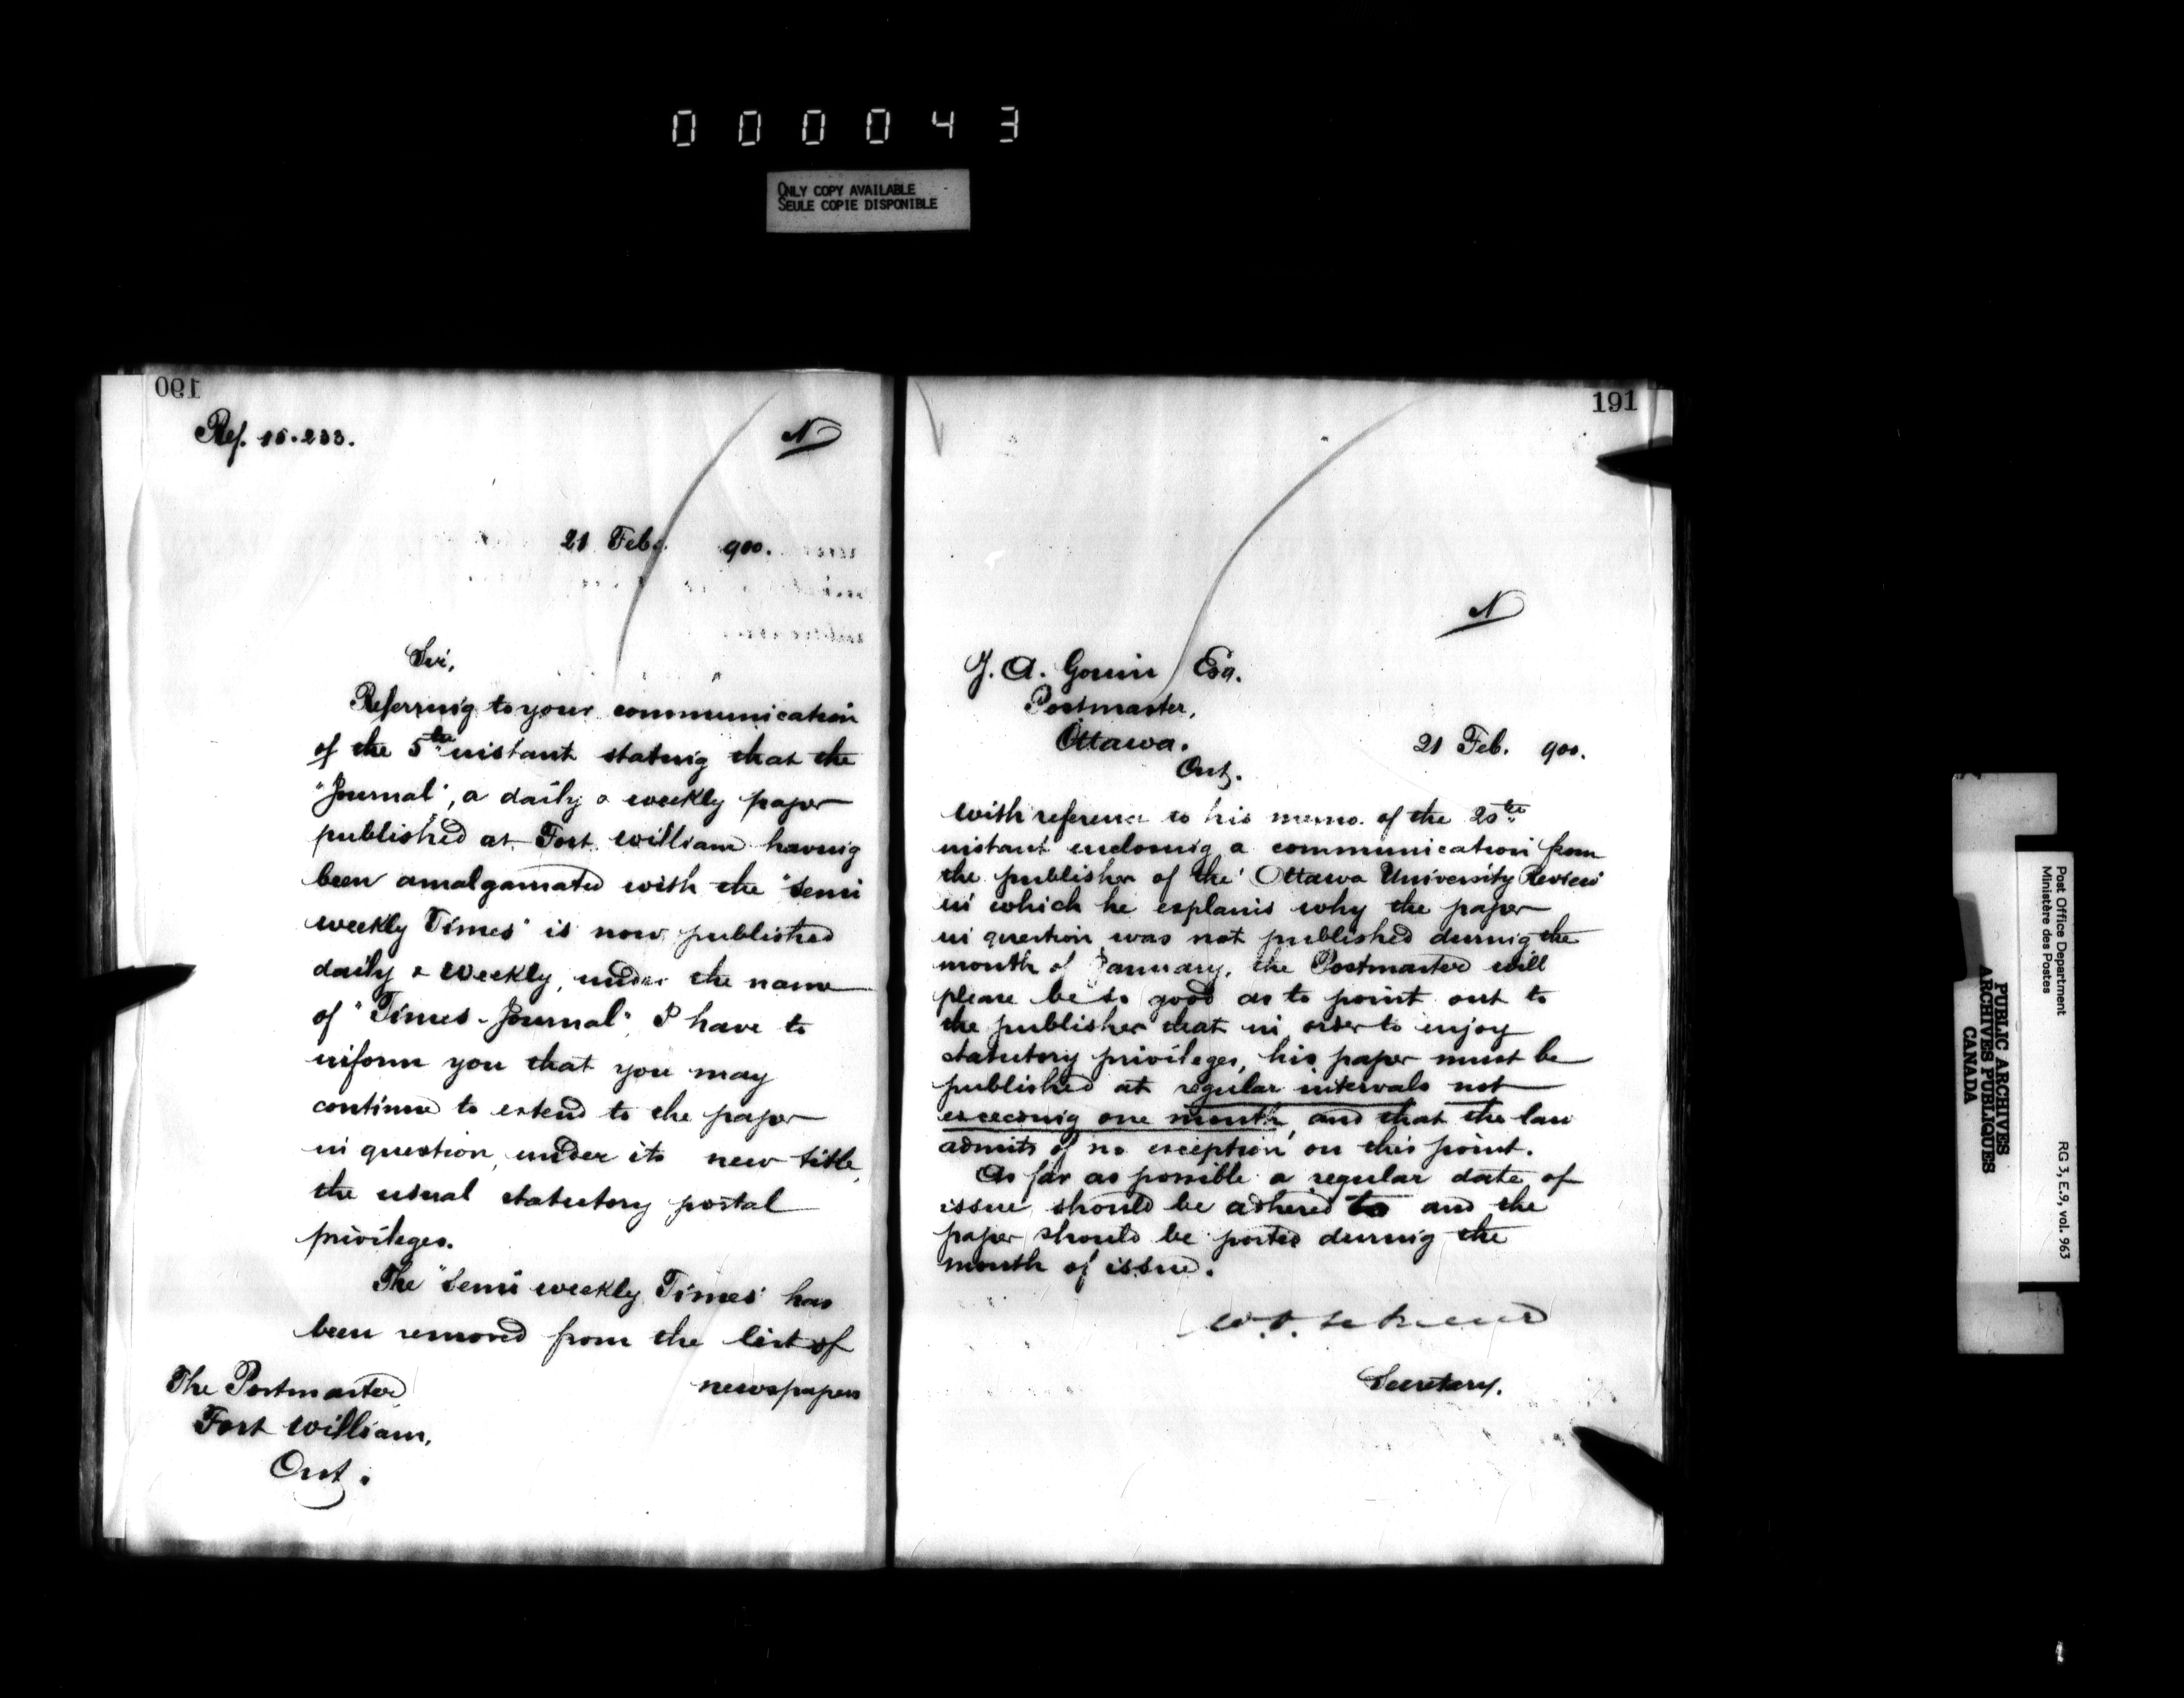 000043
ONLY COPY AVAILABLE
SEULE COPIE DISPONIBLE
190
Ref. 15.233.
N
21 Feb. 900.
Sir,
Referring to your communication
of the 5th instant stating that the
"Journal", a daily & weekly paper
published at Fort William having
been amalgamated with the "Semi
weekly Times" is now published
daily & weekly, under the name
of "Times-Journal", I have to
inform you that you may
continue to extend to the paper
in question, under its new title,
the usual statutory postal
privileges.
The "Semi weekly Times" has
been removed from the list of
newspapers
The Postmaster
Fort William,
Ont.
191
N
J. A. Gouin Esq.
Postmaster,
Ottawa.
Ont.
21 Feb. 900.
With reference to his memo. of the 20th
instant enclosing a communication from
the publisher of the "Ottawa University Review"
in which he explains why the paper
in question was not published during the
month of January, the Postmaster will
please be so good as to point out to
the publisher that in order to enjoy
statutory privileges, his paper must be
published at regular intervals not
exceeding one month, and that the law
admits of no exception on this point.
As far as possible a regular date of
issue should be adhered to and the
paper should be posted during the
month of issue.
Secretary.
Post Office Department
Ministère des Postes
RG 3, E.9, vol. 963
PUBLIC ARCHIVES
ARCHIVES PUBLIQUES
CANADA